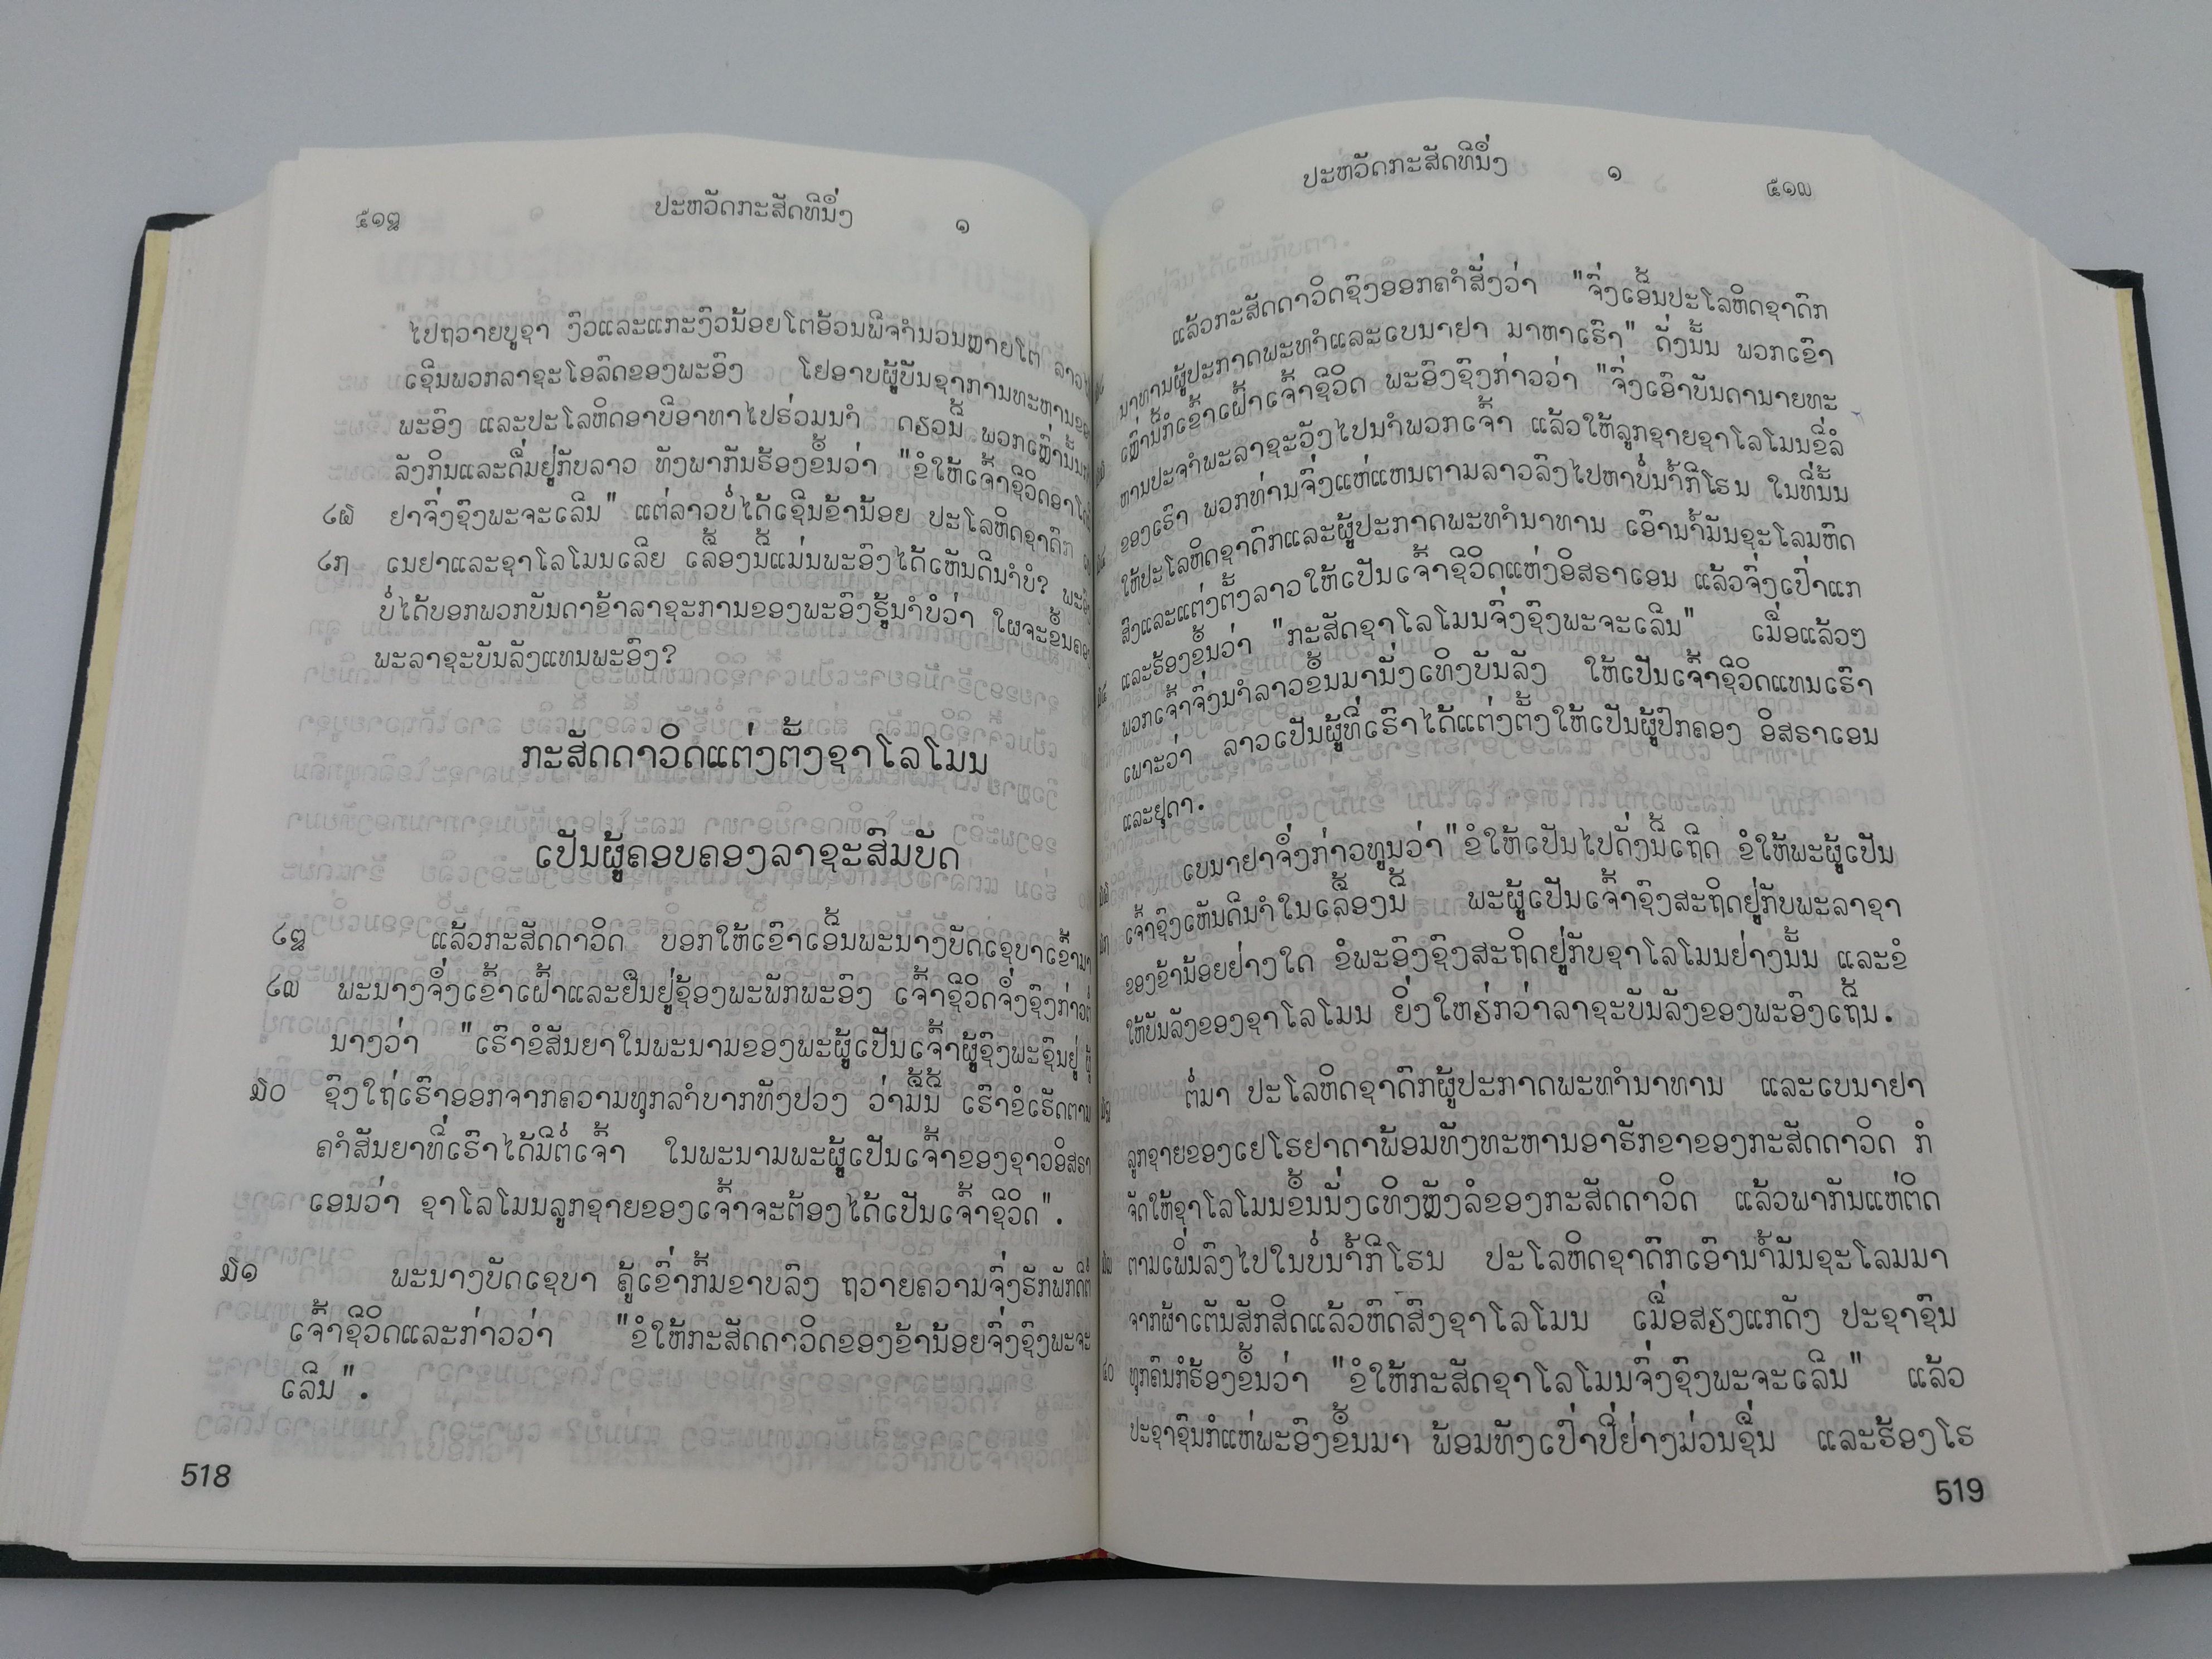 ໕໑໘ ປະຫວັດກະສັດທີນຶ່ງ ໑
ໄປຖວາຍບູຊາ ງົວແລະແກະງົວນ້ອຍໂຕອ້ວນພີຈຳນວນຫຼາຍໂຕ
ເຊີນພວກລາຊະໂອລົດຂອງພະອົງ ໂຢອາບຜູ້ບັນຊາການທະຫານຂອງ
ພະອົງ ແລະປະໂລຫິດອາບີອາທາໄປຮ່ວມນຳ ດຽວນີ້ ພວກເຫຼົ່ານັ້ນ
ລັງກິນແລະດື່ມຢູ່ກັບລາວ ທັງພາກັນຮ້ອງຂຶ້ນວ່າ "ຂໍໃຫ້ເຈົ້າຊີວິດອາໂດ
໒໖ ຢາຈົ່ງຊົງພະຈະເລີນ" ແຕ່ລາວບໍ່ໄດ້ເຊີນຂ້ານ້ອຍ ປະໂລຫິດຊາດົກ
໒໗ ເນຢາແລະຊາໂລໂມນເລີຍ ເລື້ອງນີ້ແມ່ນພະອົງໄດ້ເຫັນດີນຳບໍ?
ບໍ່ໄດ້ບອກພວກບັນດາຂ້າລາຊະການຂອງພະອົງຮູ້ນຳບໍວ່າ ໃຜຈະຂຶ້ນຄອງ
ພະລາຊະບັນລັງແທນພະອົງ?
ກະສັດດາວິດແຕ່ງຕັ້ງຊາໂລໂມນ
ເປັນຜູ້ຄອບຄອງລາຊະສົມບັດ
໒໘ ແລ້ວກະສັດດາວິດ ບອກໃຫ້ເຂົາເອີ້ນພະນາງບັດເຊບາເຂົ້າມາ
໒໙ ພະນາງຈຶ່ງເຂົ້າເຝົ້າແລະຢືນຢູ່ຊ້ອງພະພັກພະອົງ ເຈົ້າຊີວິດຈຶ່ງຊົງກ່າວຕໍ່
ນາງວ່າ "ເຮົາຂໍສັນຍາໃນພະນາມຂອງພະຜູ້ເປັນເຈົ້າຜູ້ຊົງພະຊົນຢູ່ ຜູ້
໓໐ ຊົງໃຖ່ເຮົາອອກຈາກຄວາມທຸກລຳບາກທັງປວງ ວ່າມື້ນີ້ ເຮົາຂໍເຮັດຕາມ
ຄຳສັນຍາທີ່ເຮົາໄດ້ມີຕໍ່ເຈົ້າ ໃນພະນາມພະຜູ້ເປັນເຈົ້າຂອງຊາວອິສຣາ
ເອນວ່າ ຊາໂລໂມນລູກຊາຍຂອງເຈົ້າຈະຕ້ອງໄດ້ເປັນເຈົ້າຊີວິດ".
໓໑ ພະນາງບັດເຊບາ ຄູ້ເຂົ່າກົ້ມຂາບລົງ ຖວາຍຄວາມຈົ່ງຮັກພັກດີຕໍ່
ເຈົ້າຊີວິດແລະກ່າວວ່າ "ຂໍໃຫ້ກະສັດດາວິດຂອງຂ້ານ້ອຍຈົ່ງຊົງພະຈະ
ເລີນ".
518
ປະຫວັດກະສັດທີນຶ່ງ ໑ ໕໑໙
ແລ້ວກະສັດດາວິດຊົງອອກຄຳສັ່ງວ່າ "ຈົ່ງເອີ້ນປະໂລຫິດຊາດົກ
ນາທານຜູ້ປະກາດພະທຳແລະເບນາຢາ ມາຫາເຮົາ" ດັ່ງນັ້ນ ພວກເຂົາ
ເຫຼົ່ານີ້ກໍເຂົ້າເຝົ້າເຈົ້າຊີວິດ ພະອົງຊົງກ່າວວ່າ "ຈົ່ງເອົາບັນດານາຍທະ
ຫານປະຈຳພະລາຊະວັງໄປນຳພວກເຈົ້າ ແລ້ວໃຫ້ລູກຊາຍຊາໂລໂມນຂີ່ລໍ
ຂອງເຮົາ ພວກທ່ານຈົ່ງແຫ່ແຫນຕາມລາວລົງໄປຫາບໍ່ນ້ຳກີໂຮນ ໃນທີ່ນັ້ນ
ໃຫ້ປະໂລຫິດຊາດົກແລະຜູ້ປະກາດພະທຳນາທານ ເອົານ້ຳມັນຊະໂລມຫົດ
ສົງແລະແຕ່ງຕັ້ງລາວໃຫ້ເປັນເຈົ້າຊີວິດແຫ່ງອິສຣາເອນ ແລ້ວຈົ່ງເປົ່າແກ
ແລະຮ້ອງຂຶ້ນວ່າ "ກະສັດຊາໂລໂມນຈົ່ງຊົງພະຈະເລີນ" ເມື່ອແລ້ວໆ
ພວກເຈົ້າຈົ່ງນຳລາວຂຶ້ນມານັ່ງເທິງບັນລັງ ໃຫ້ເປັນເຈົ້າຊີວິດແທນເຮົາ
ເພາະວ່າ ລາວເປັນຜູ້ທີ່ເຮົາໄດ້ແຕ່ງຕັ້ງໃຫ້ເປັນຜູ້ປົກຄອງ ອິສຣາເອນ
ແລະຢຸດາ.
ເບນາຢາຈຶ່ງກ່າວທູນວ່າ"ຂໍໃຫ້ເປັນໄປດັ່ງນີ້ເຖີດ ຂໍໃຫ້ພະຜູ້ເປັນ
ເຈົ້າຊົງເຫັນດີນຳໃນເລື້ອງນີ້ ພະຜູ້ເປັນເຈົ້າຊົງສະຖິດຢູ່ກັບພະລາຊາ
ຂອງຂ້ານ້ອຍຢ່າງໃດ ຂໍພະອົງຊົງສະຖິດຢູ່ກັບຊາໂລໂມນຢ່າງນັ້ນ ແລະຂໍ
ໃຫ້ບັນລັງຂອງຊາໂລໂມນ ຍິ່ງໃຫຽ່ກວ່າລາຊະບັນລັງຂອງພະອົງເຖີ້ນ.
ຕໍ່ມາ ປະໂລຫິດຊາດົກຜູ້ປະກາດພະທຳນາທານ ແລະເບນາຢາ
ລູກຊາຍຂອງເຢໂຮຢາດາພ້ອມທັງທະຫານອາຮັກຂາຂອງກະສັດດາວິດ ກໍ
ຈັດໃຫ້ຊາໂລໂມນຂຶ້ນນັ່ງເທິງຫຼັງລໍຂອງກະສັດດາວິດ ແລ້ວພາກັນແຫ່ຕິດ
ຕາມເພິ່ນລົງໄປໃນບໍ່ນ້ຳກີໂຮນ ປະໂລຫິດຊາດົກເອົານ້ຳມັນຊະໂລມມາ
ຈາກຜ້າເຕັນສັກສິດແລ້ວຫົດສົງຊາໂລໂມນ ເມື່ອສຽງແກດັງ ປະຊາຊົນ
໔໐ ທຸກຄົນກໍຮ້ອງຂຶ້ນວ່າ "ຂໍໃຫ້ກະສັດຊາໂລໂມນຈົ່ງຊົງພະຈະເລີນ" ແລ້ວ
ປະຊາຊົນກໍແຫ່ພະອົງຂຶ້ນມາ ພ້ອມທັງເປົ່າປີ່ຢ່າງມ່ວນຊື່ນ ແລະຮ້ອງໂຮ
519